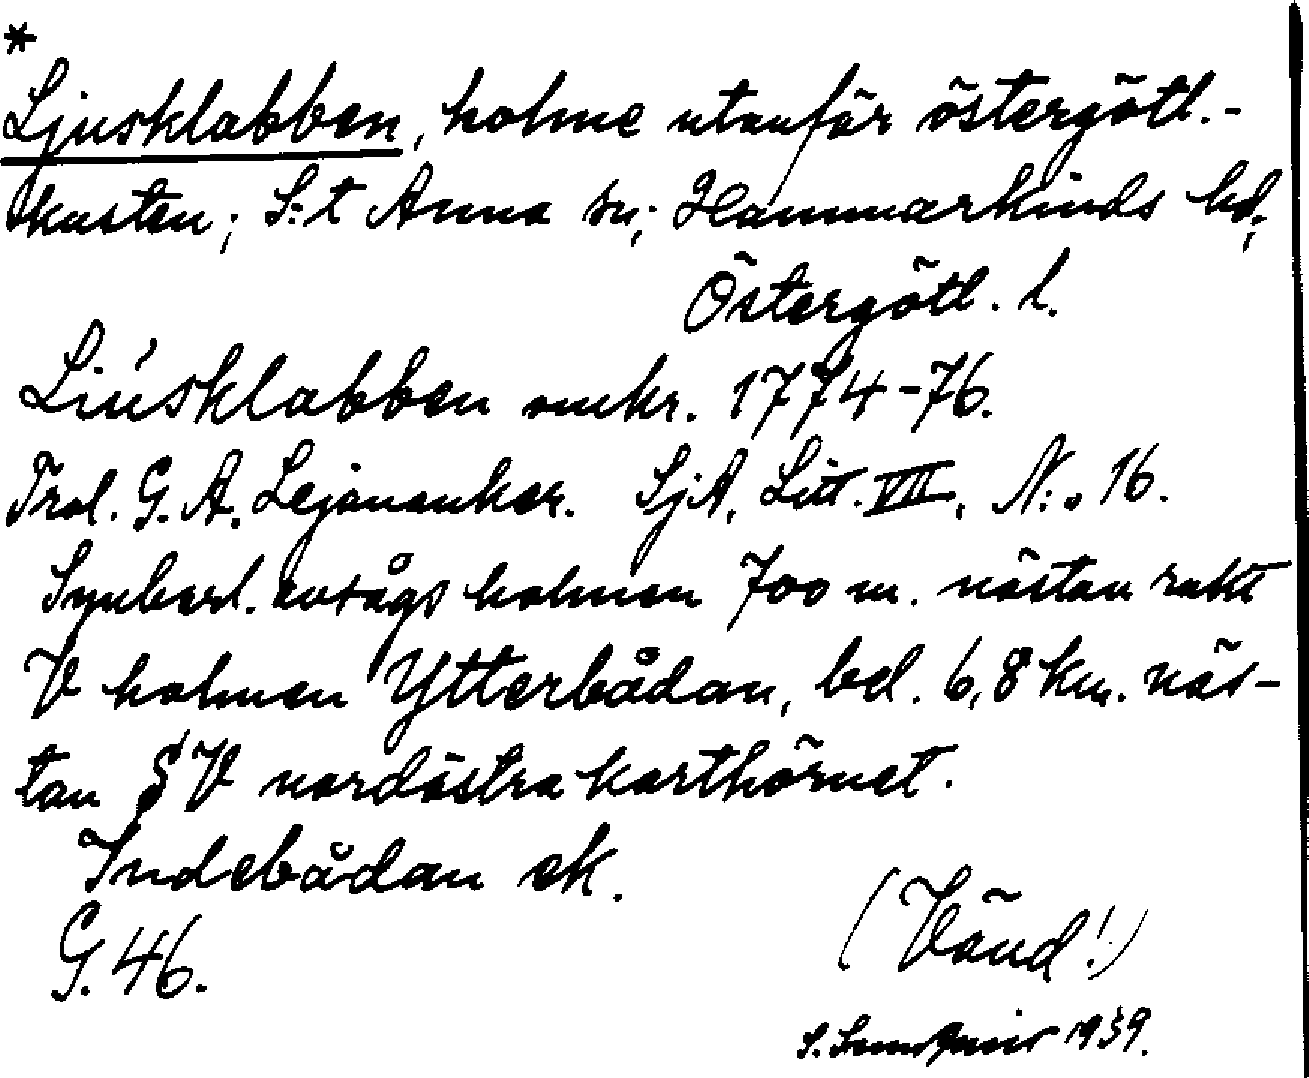 *
Ljusklabben, holme utanför östergötl.-
kusten; S:t Anna sn; Hammarkinds hd;
Östergötl. l.
Liúsklabben omkr. 1774-76.
Trol. G. A. Lejonanker. SjA, Litt. VII, N:o 16.
Synbarl. avsågs holmen 700 m. nästan rakt
V holmen Ytterbådan, bel. 6,8 km. näs-
tan SV nordöstra karthörnet.
Indebådan ek.
G. 46.
(Vänd!)
S. 1939.